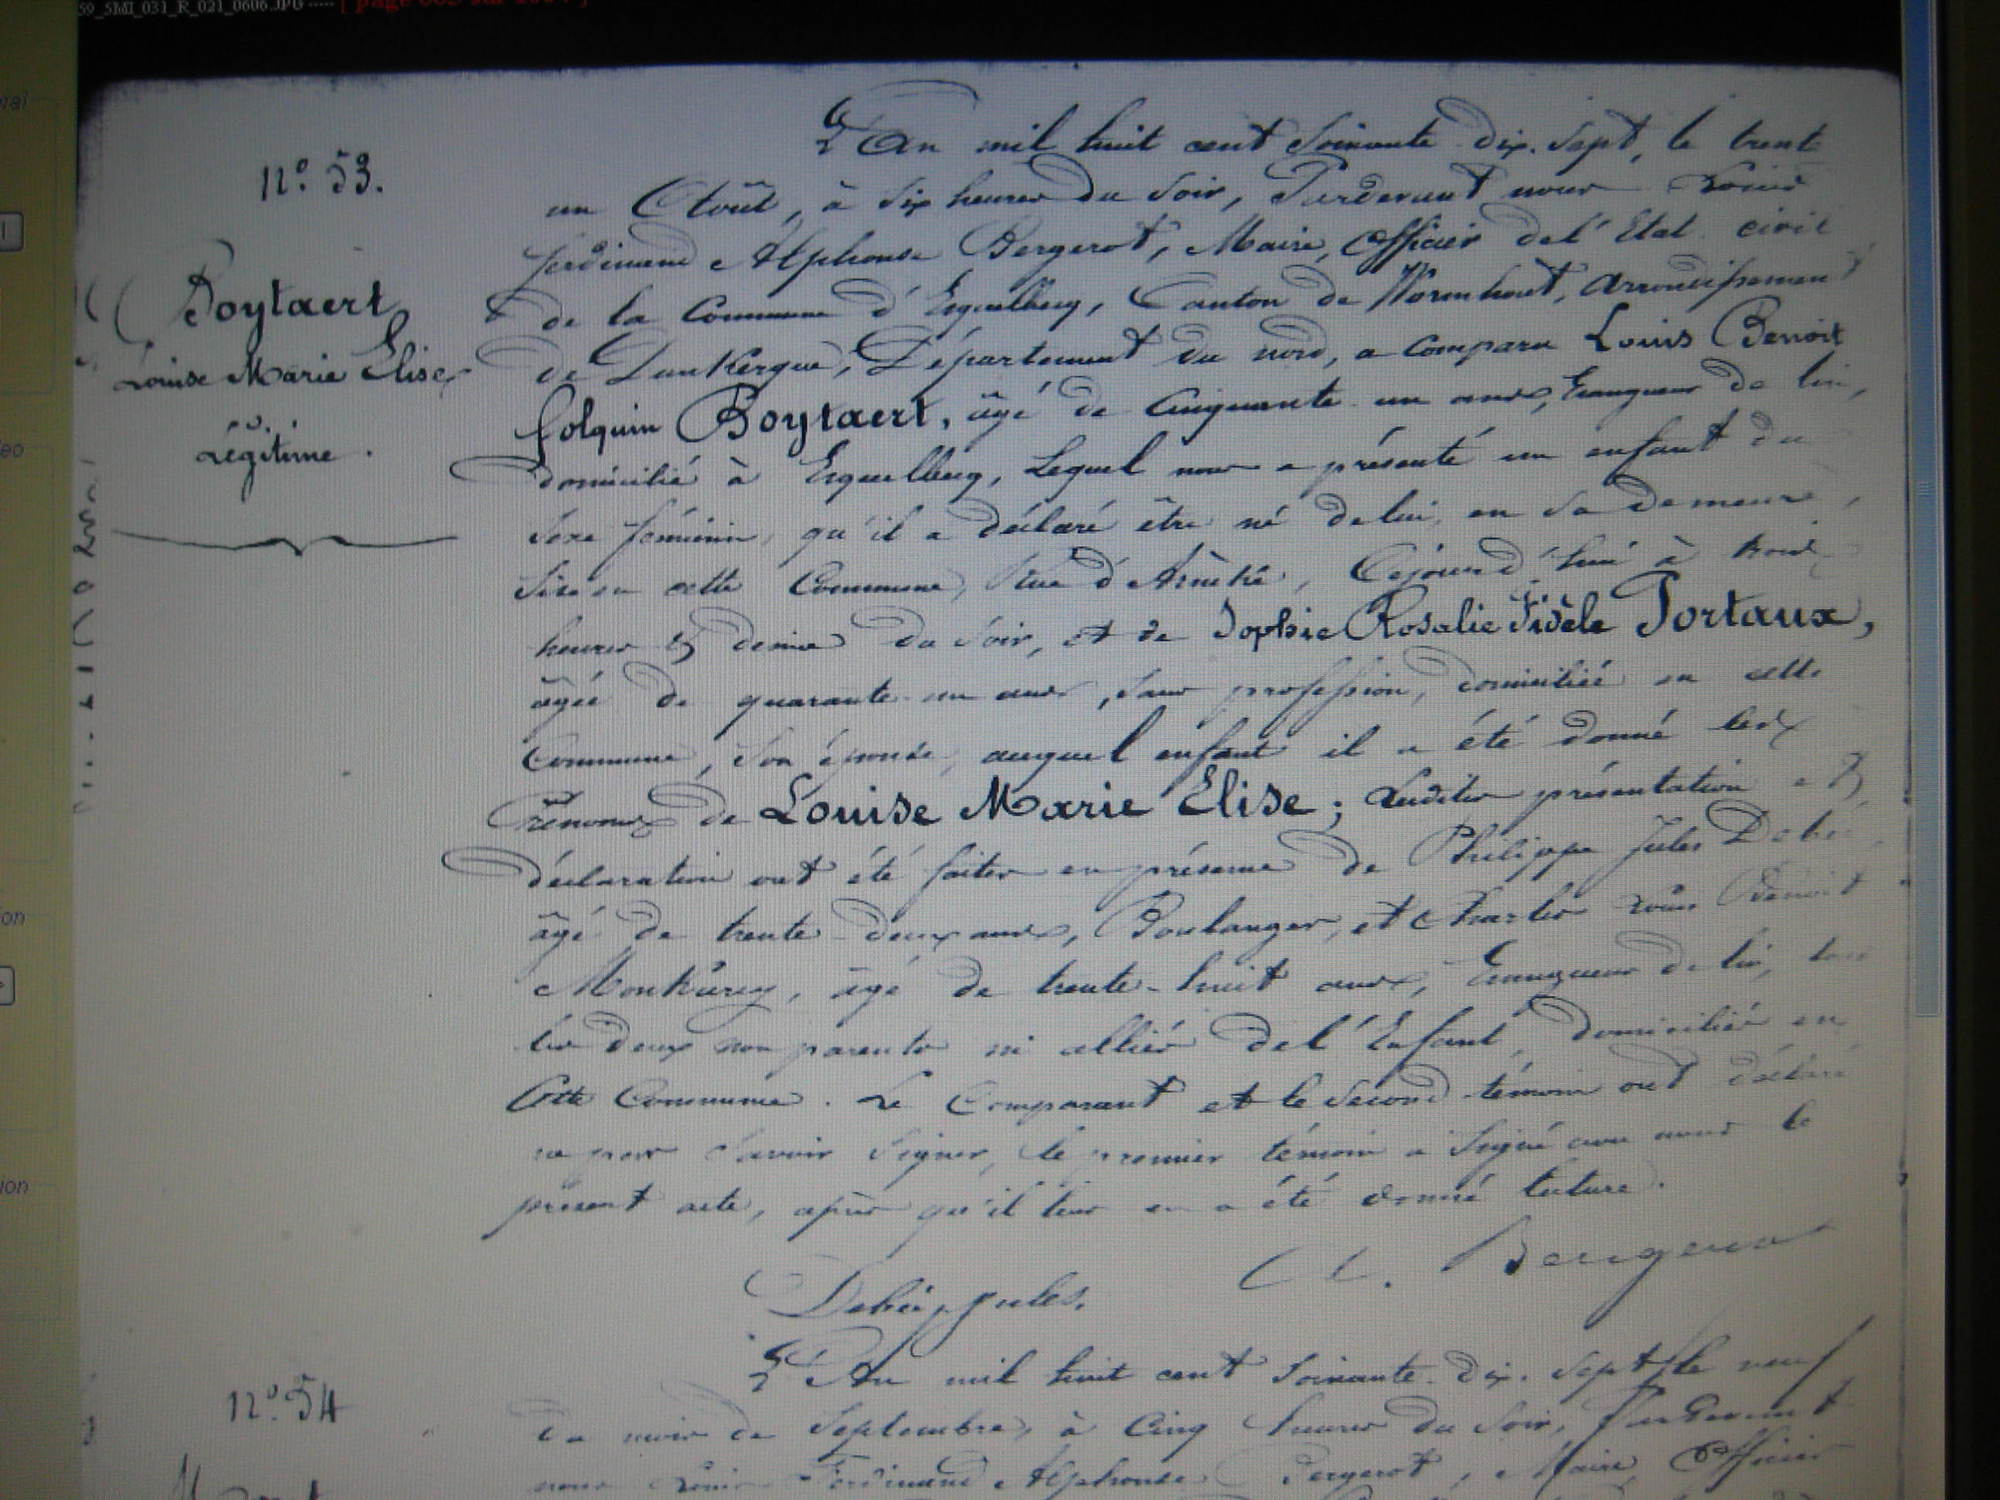 59_5MI_031_R_021_0606.JPG ----- [ page 605 sur
n.º 53.
Boytaert
Louise Marie Elise
Légitime.
L'An mil huit cent soixante dix-sept, le trente
un Août, à six heures du soir, Pardevant nous Louis
ferdinand Alphonse Bergerot, Maire, Officier de l'Etat civil
de la Commune d'Esquelbecq, Canton de Wormhout, arrondissement
de Dunkerque, Département du nord, a comparu Louis Benoit
folquin Boytaert, âgé de cinquante un ans, Ecangueur de lin,
domicilié à Esquelbecq, Lequel nous a présenté un enfant du
sexe féminin, qu'il a déclaré être né de lui, en sa demeure,
sise en cette Commune, Rue d'Arnèke, Cejourd'hui à trois
heures & demie du soir, et de Sophie Rosalie Fidèle Tortaux,
âgée de quarante-un ans, sans profession, domiciliée en cette
Commune, son épouse, auquel enfant il a été donné les
Prénoms de Louise Marie Elise; Lesdites présentation &
déclaration ont été faites en présence de Philippe Jules
âgé de trente-deux ans, Boulanger, et Charles Louis Benoit
âgé de trente-huit ans, Ecangueur de lin, tous
les deux non parents ni alliés de l'Enfant, domiciliés en
Cette Commune. Le Comparant et le second témoin ont déclaré
ne pas savoir signer, le premier témoin a signé avec nous le
présent acte, après qu'il leur en a été donné lecture.
A. Bergerot
Jules.
n.º 54
L'An mil huit cent soixante-dix-sept, le neuf
du mois de Septembre, à Cinq heures du soir, Pardevant
nous Louis Ferdinand Alphonse Bergerot, Maire, Officier